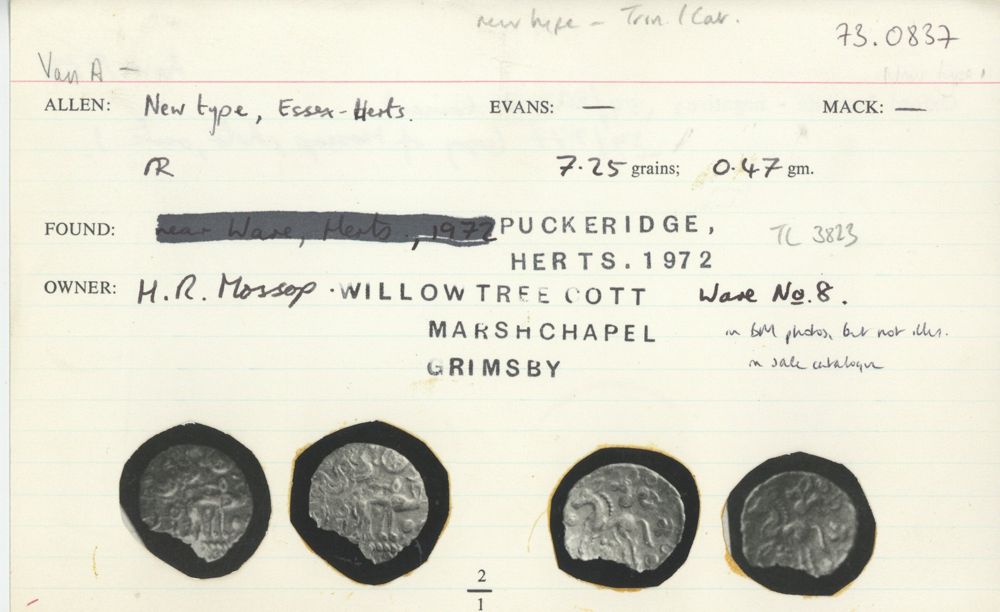 new type - Trin. / Cat.
73.0837
Van A -
ALLEN: New type, Essex-Herts. EVANS: MACK: —
AR 7.25 grains; 0.47 gm.
FOUND: near Ware, Herts., 1972 PUCKERIDGE, TL 3823
HERTS. 1972
OWNER: H.R. Mossop. WILLOW TREE COTT Ware No. 8.
MARSHCHAPEL in BM photos, but not illus.
GRIMSBY in sale catalogue
2
1